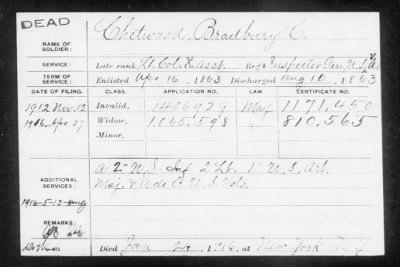 DEAD
NAME OF SOLDIER: Chetwood, Bradbury C.
SERVICE: Late rank, Lt. Col. & Asst. Reg't Inspector Gen. U.S.V.
TERM OF SERVICE: Enlisted Apr 16, 1863 Discharged Aug 10, 1863
DATE OF FILING. CLASS. APPLICATION NO. LAW. CERTIFICATE NO.
1912 Nov. 12 Invalid, 1406929 May 1171450
1916 Apr 27 Widow, 1,065,598 810,565
Minor,
ADDITIONAL SERVICES:
2" U.S. Inf 2 Lt. 1" U.S. Art.
Maj. U.S. Vols.
REMARKS:
Died Jan 1916, at New York N.Y.